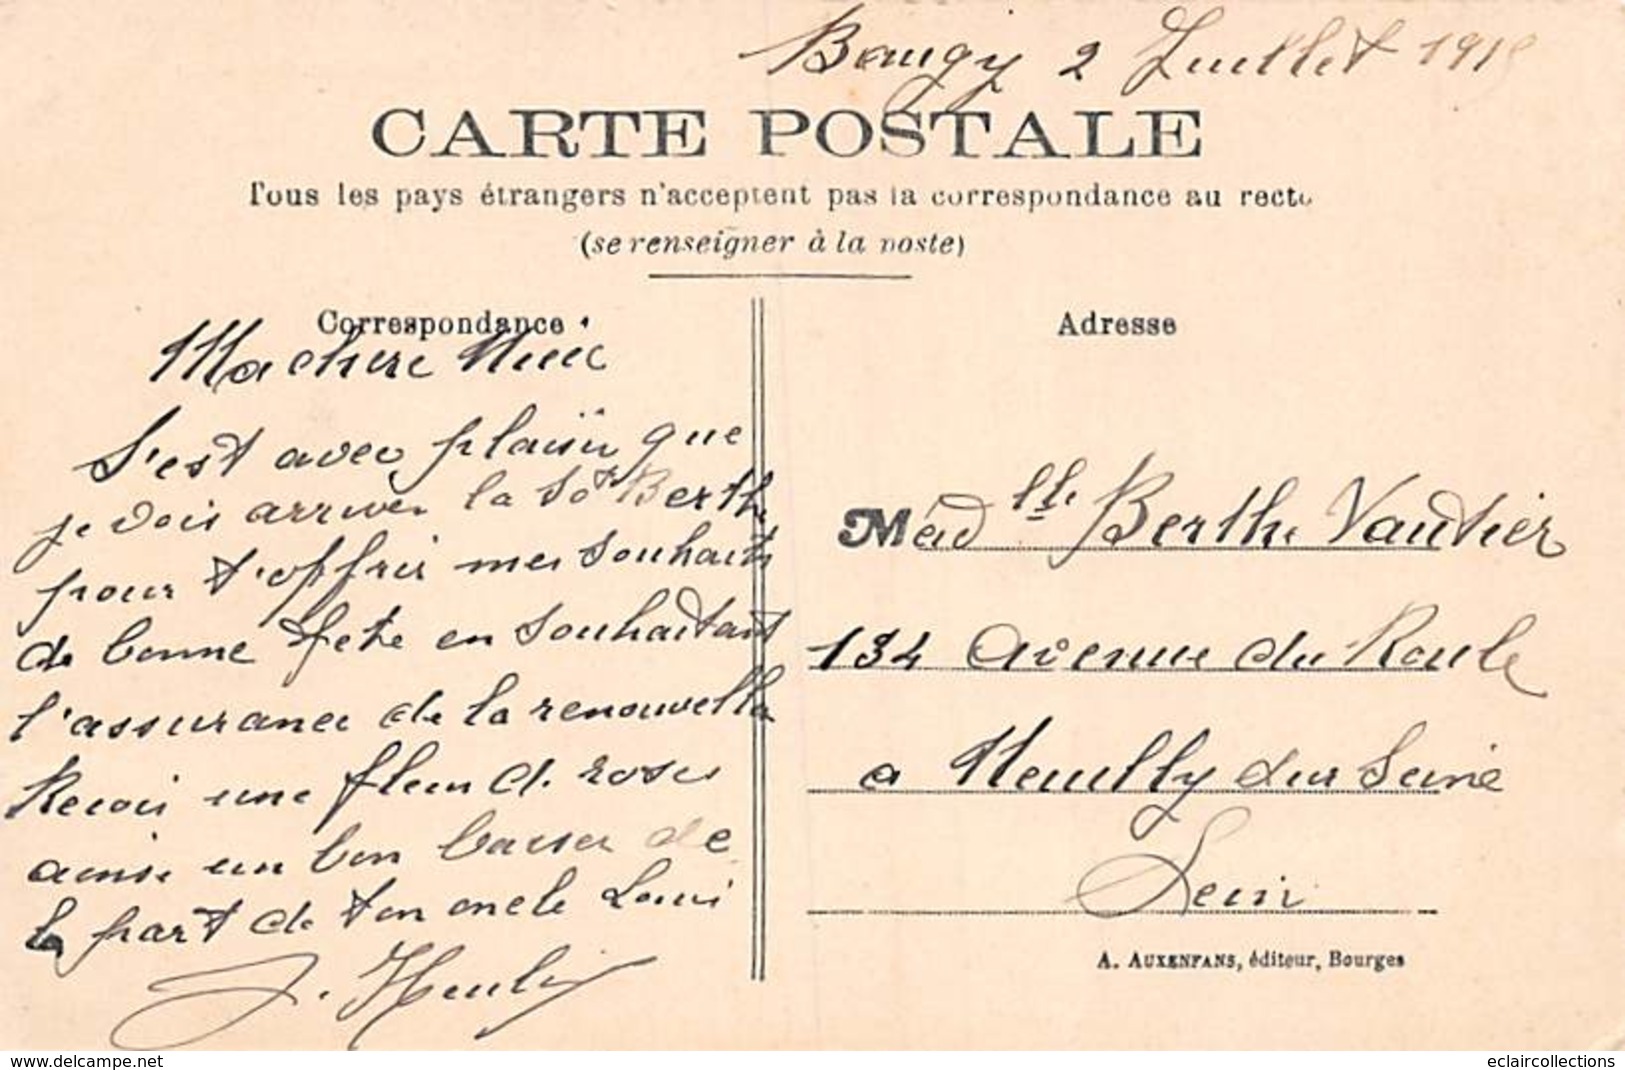 Baugy 2 Juillet 191
CARTE POSTALE
Tous les pays étrangers n'acceptent pas la correspondance au recto
(se renseigner à la poste)
Correspondance
Ma chere Niece
S'est avec plaisir que
je vois arriver la Ste Berthe
pour t'offrir mes souhaits
de bonne fete en souhaitant
l'assurance de la renouveller
Recois une fleur de roses
ainsi un bon baiser de
la part de ton oncle Louis
Adresse
Mad lle Berthe Vautier
134 avenue du Roule
a Neuilly sur Seine
Seine
A. AUXENFANS, éditeur, Bourges
www.delcampe.net
eclaircollections